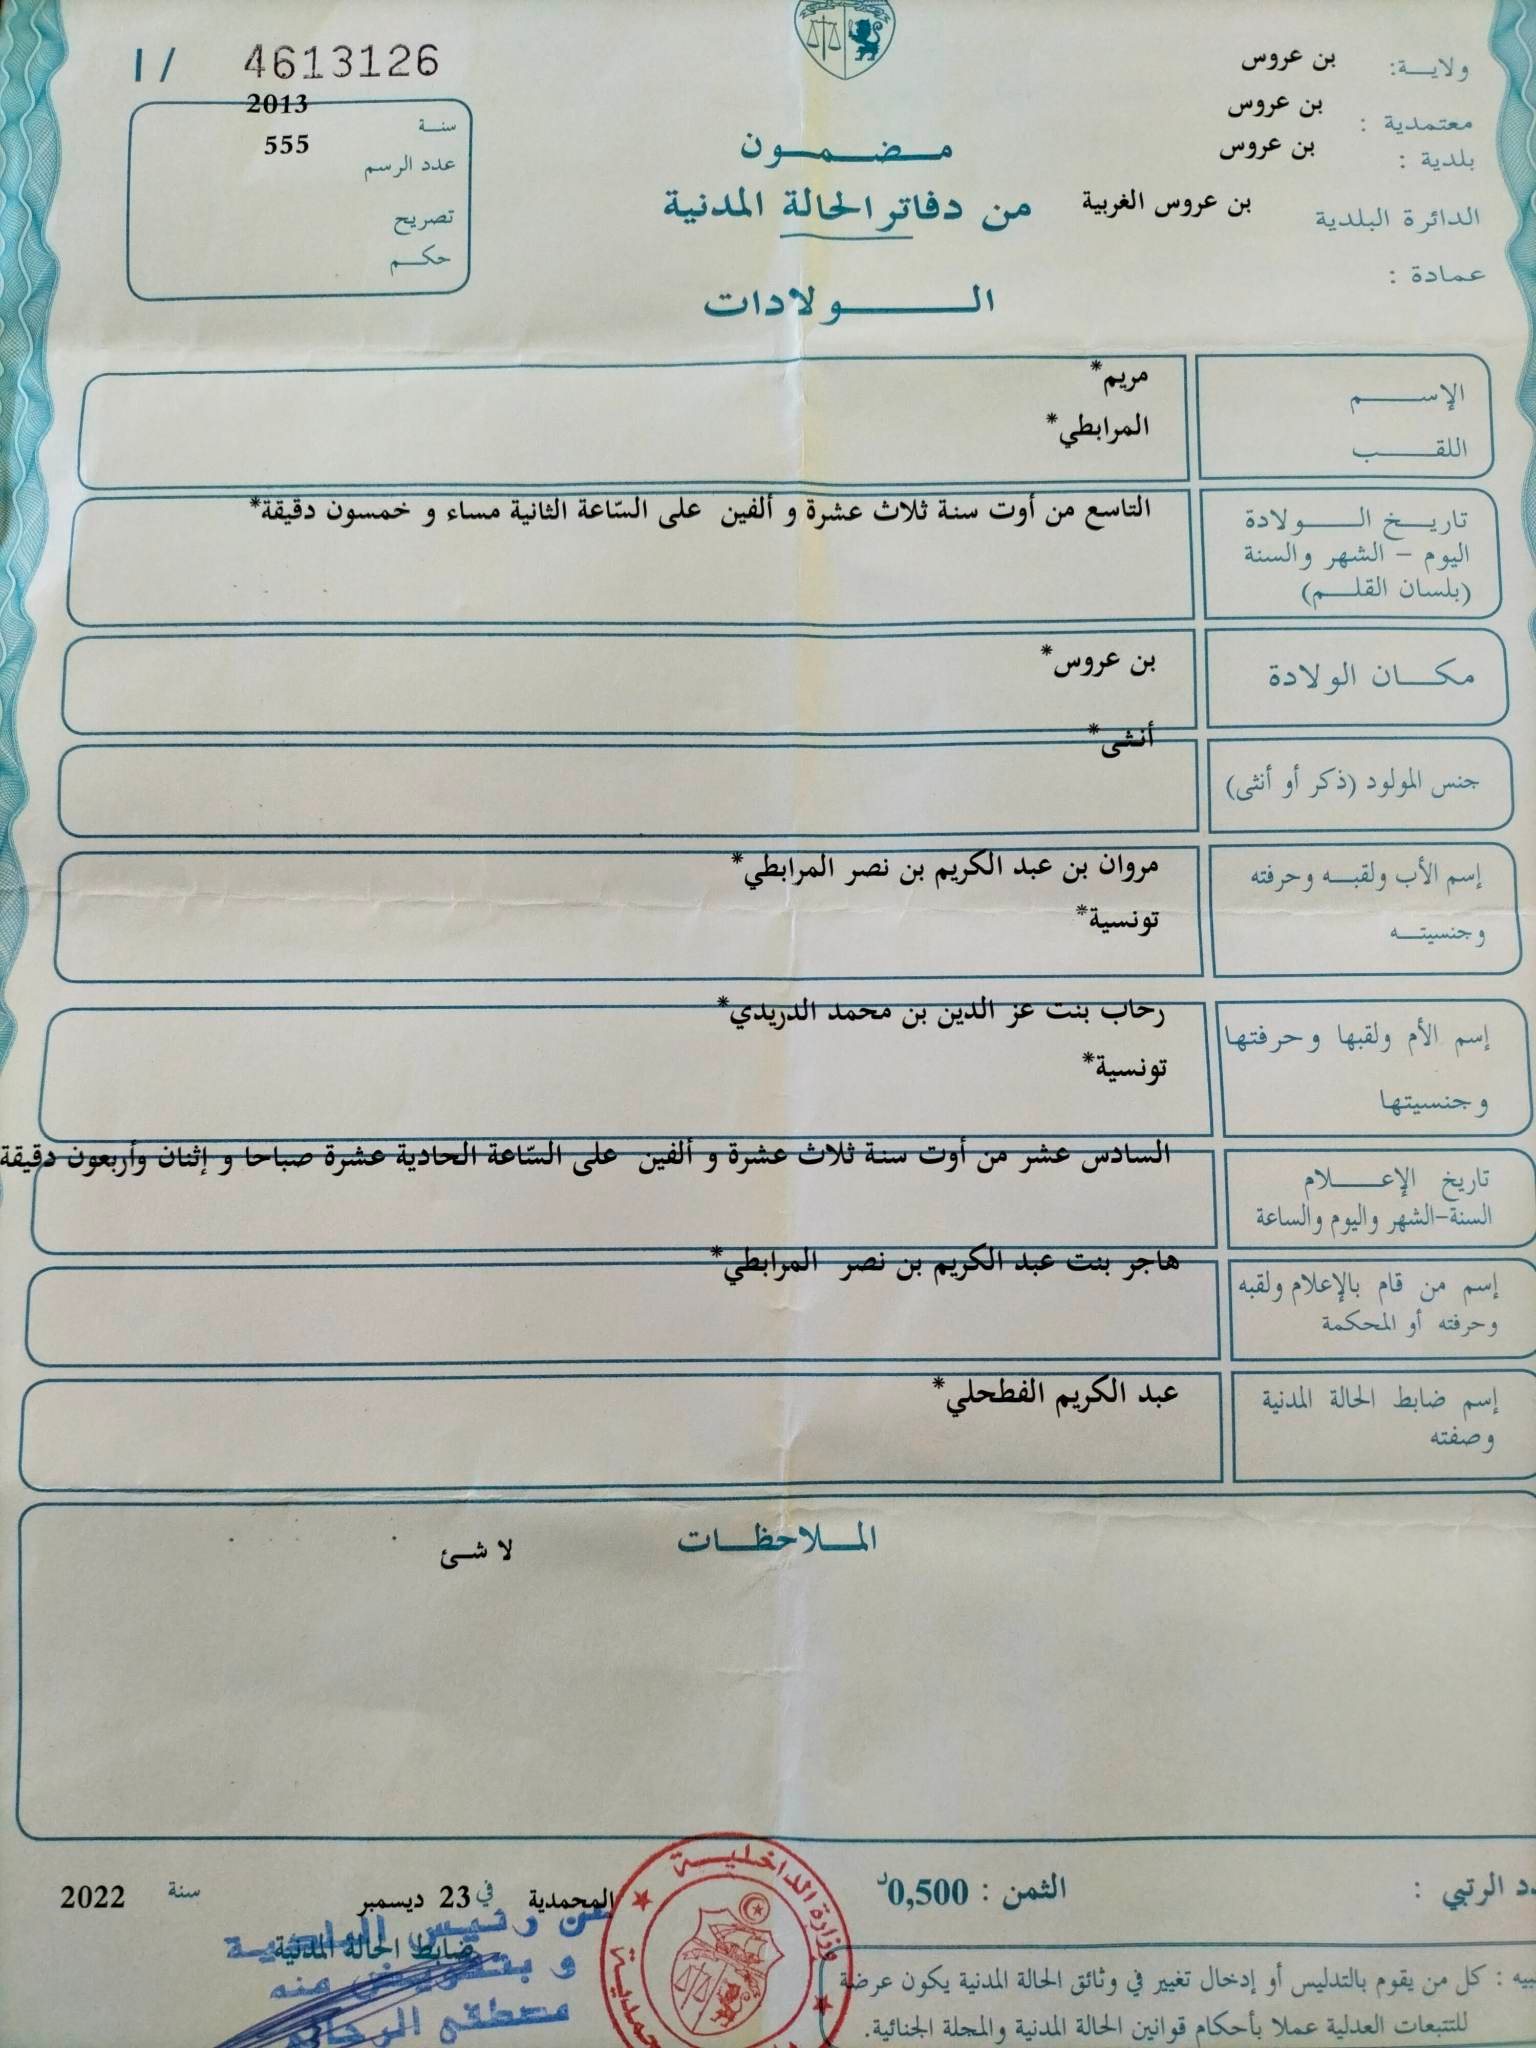 ولاية: بن عروس
معتمدية : بن عروس
بلدية : بن عروس
الدائرة البلدية بن عروس الغربية
عمادة :
مضمون
من دفاتر الحالة المدنية
الولادات
I / 4613126
سنة 2013
عدد الرسم 555
تصريح
حكم
الإسم مريم*
اللقب المرابطي*
تاريخ الولادة التاسع من أوت سنة ثلاث عشرة و ألفين على السّاعة الثانية مساء و خمسون دقيقة*
اليوم - الشهر والسنة
(بلسان القلم)
مكان الولادة بن عروس*
جنس المولود (ذكر أو أنثى) أنثى*
إسم الأب ولقبه وحرفته مروان بن عبد الكريم بن نصر المرابطي*
وجنسيته تونسية*
إسم الأم ولقبها وحرفتها رحاب بنت عز الدين بن محمد الدريدي*
وجنسيتها تونسية*
تاريخ الإعلام السادس عشر من أوت سنة ثلاث عشرة و ألفين على السّاعة الحادية عشرة صباحا و إثنان وأربعون دقيقة
السنة-الشهر واليوم والساعة
إسم من قام بالإعلام ولقبه هاجر بنت عبد الكريم بن نصر المرابطي*
وحرفته أو المحكمة
إسم ضابط الحالة المدنية عبد الكريم الفطحلي*
وصفته
الملاحظات
لا شئ
الرتبي :
الثمن : 0,500د
المحمدية في 23 ديسمبر سنة 2022
ضابط الحالة المدنية
عن رئيس البلدية
و بتفويض منه
مصطفى
وزارة الداخلية
: كل من يقوم بالتدليس أو إدخال تغيير في وثائق الحالة المدنية يكون عرضة
للتتبعات العدلية عملا بأحكام قوانين الحالة المدنية والمجلة الجنائية.